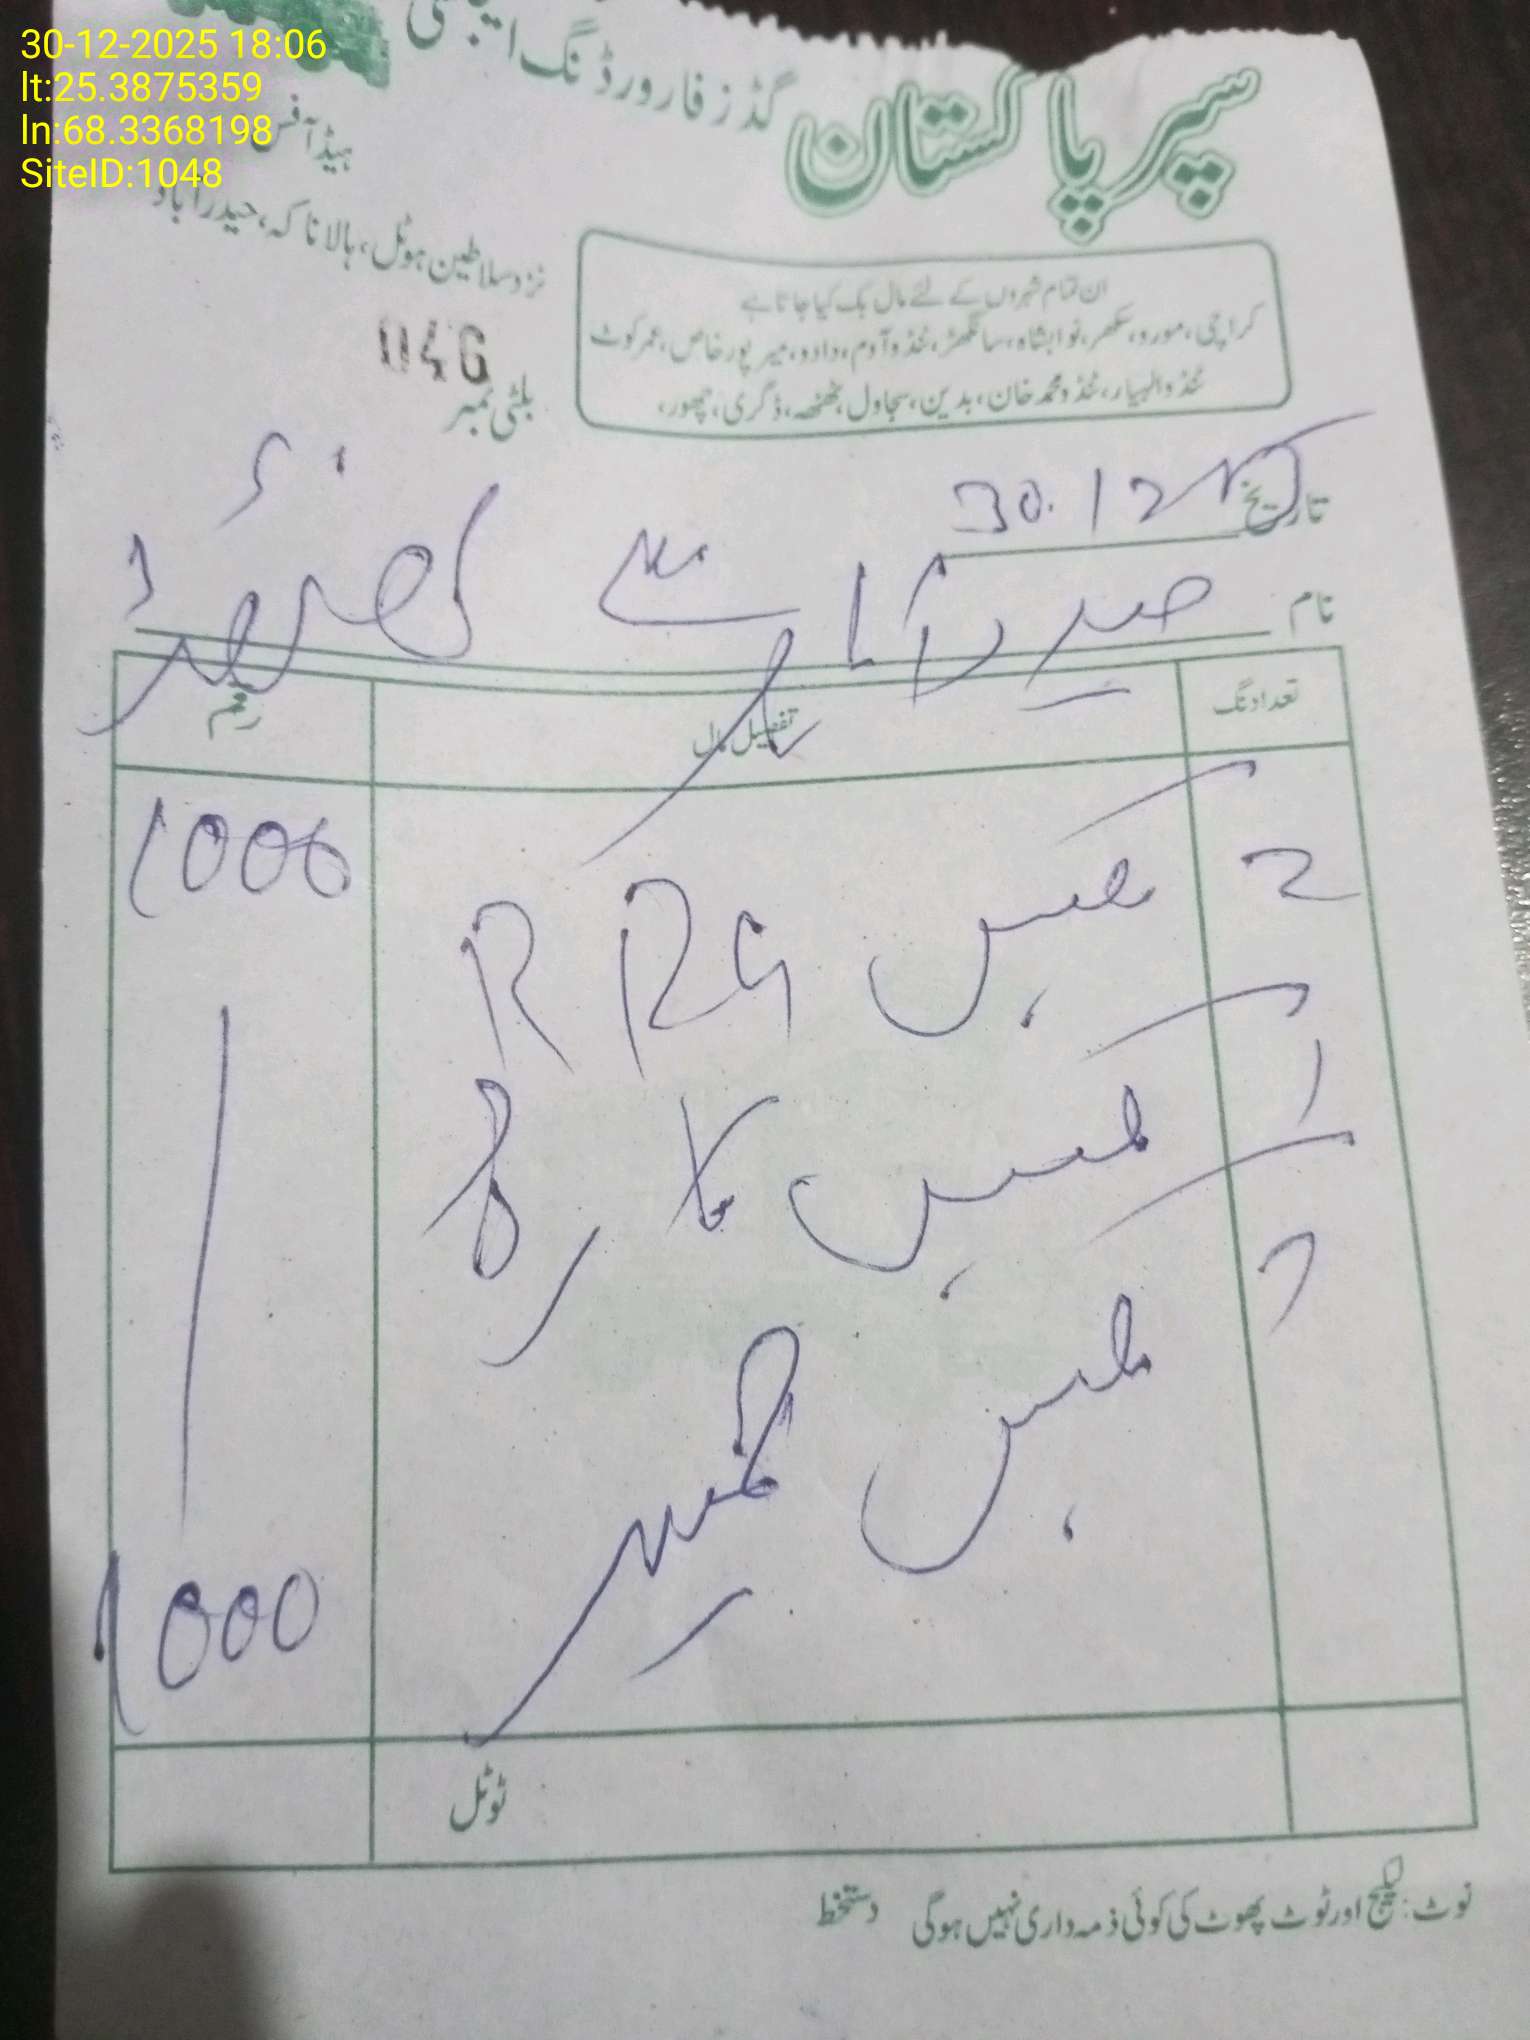 30-12-2025 18:06
lt:25.3875359
ln:68.3368198
SiteID:1048
سپر پاکستان گڈز فارورڈنگ ایجنسی
ہیڈ آفس
نزد سلاطین ہوٹل، ہالا ناکہ، حیدرآباد
ان تمام شہروں کے لئے مال بک کیا جاتا ہے
کراچی، مورو، سکھر، نوابشاہ، سانگھڑ، ٹنڈوآدم، دادو، میرپورخاص، عمرکوٹ
ٹنڈوالہیار، ٹنڈومحمدخان، بدین، سجاول، ٹھٹھہ، ڈگری، چھور،
046
بلٹی نمبر
تاریخ 30.12
نام حیدرآباد سے
تعداد نگ تفصیل مال رقم
2 بکس RRG 1000
1 بکس
بکس
1000
ٹوٹل
نوٹ: لیکیج اور ٹوٹ پھوٹ کی کوئی ذمہ داری نہیں ہوگی دستخط